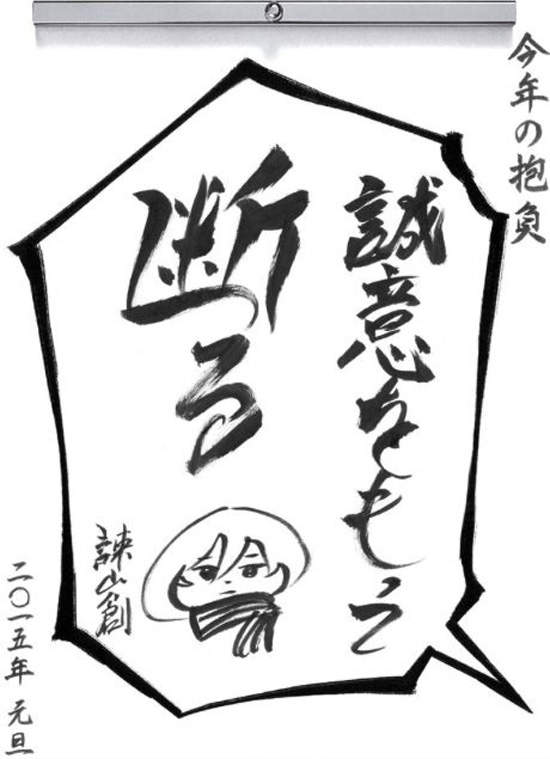 今年の抱負
誠意をもって
断る
諫山創
二〇一五年 元旦